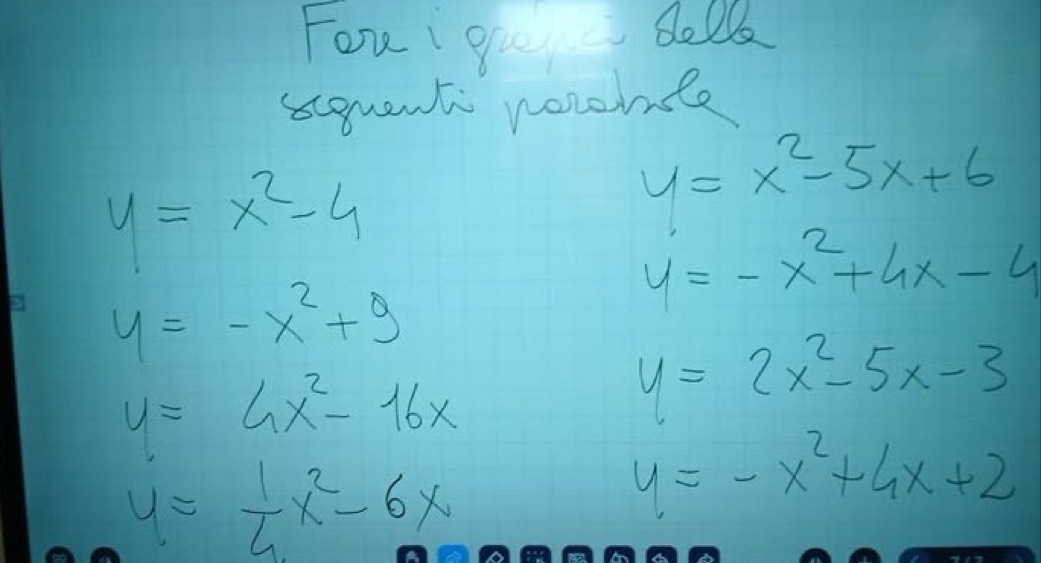 Fare i grafici delle
seguenti parabole
y = x² - 4
y = -x² + 9
y = 4x² - 16x
y = 1/4 x² - 6x
y = x² - 5x + 6
y = -x² + 4x - 4
y = 2x² - 5x - 3
y = -x² + 4x + 2